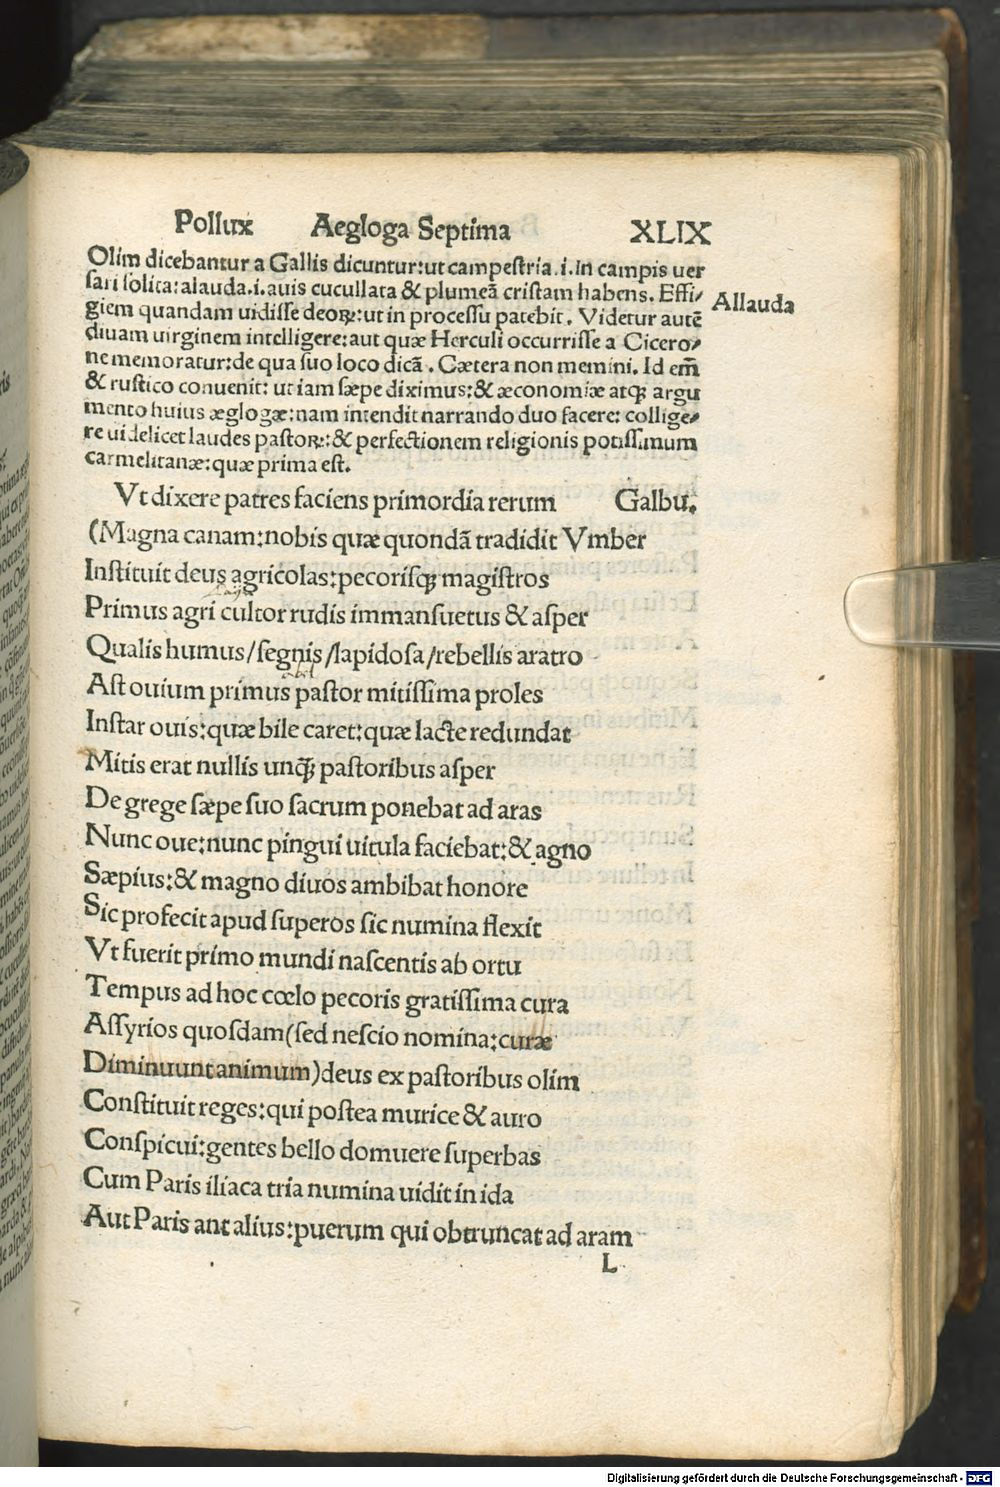 Pollux Aegloga Septima XLIX
Olim dicebantur a Gallis dicuntur:ut campeſtria.i.In campis uer
ſari ſolita:alauda.i.auis cucullata & plumeã criſtam habens. Effi/
Allauda
giem quandam uidiſſe deoꝝ:ut in proceſſu patebit. Videtur autẽ
diuam uirginem intelligere:aut quæ Herculi occurriſſe a Cicero/
ne memoratur:de qua ſuo loco dicã. Cætera non memini. Id em̃
& ruſtico conuenit: ut iam ſæpe diximus:& æconomiæ atqꝫ argu
mento huius æglogæ:nam intendit narrando duo facere: collige/
re uidelicet laudes paſtoꝝ:& perfectionem religionis potiſſimum
carmelitanæ:quæ prima eſt.
Vt dixere patres faciens primordia rerum Galbu.
(Magna canam:nobis quæ quondã tradidit Vmber
Inſtituit deus agricolas:pecoriſqꝫ magiſtros
Primus agri cultor rudis immanſuetus & aſper
Qualis humus/ſegnis/lapidoſa/rebellis aratro
abel
Aſt ouium primus paſtor mitiſſima proles
Inſtar ouis:quæ bile caret:quæ lacte redundat
Mitis erat nullis unqꝫ̃ paſtoribus aſper
De grege ſæpe ſuo ſacrum ponebat ad aras
Nunc oue:nunc pingui uitula faciebat:& agno
Sæpius:& magno diuos ambibat honore
Sic profecit apud ſuperos ſic numina flexit
Vt fuerit primo mundi naſcentis ab ortu
Tempus ad hoc cœlo pecoris gratiſſima cura
Aſſyrios quoſdam(ſed neſcio nomina:curæ
Diminuunt animum)deus ex paſtoribus olim
Conſtituit reges:qui poſtea murice & auro
Conſpicui:gentes bello domuere ſuperbas
Cum Paris iliaca tria numina uidit in ida
Aut Paris ant alius:puerum qui obtruncat ad aram
L
Digitalisierung gefördert durch die Deutsche Forschungsgemeinschaft - DFG